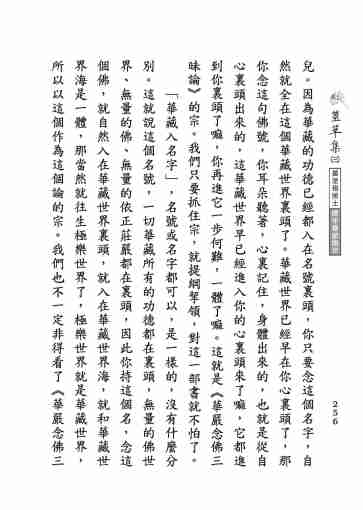 萱草集㈡
256
兒。因為華藏的功德已經都入在名號裏頭,你只要念這個名字,自
然就全在這個華藏世界裏頭了。華藏世界已經早在你心裏頭了,那
你念這句佛號,你耳朵聽著,心裏記住,身體出來的,也就是從自
心裏頭出來的,這華藏世界早已經進入你的心裏頭來了嘛。它都進
到你裏頭了嘛,你再進它一步何難,一體了嘛。這就是《華嚴念佛三
昧論》的宗。我們只要抓住宗,就提綱挈領,對這一部書就不怕了。
「華藏入名字」,名號或名字都可以,是一樣的,沒有什麼分
別。這就說這個名號,一切華藏所有的功德都在裏頭,無量的佛世
界、無量的佛、無量的依正莊嚴都在裏頭,因此你持這個名,念這
個佛,就自然入在華藏世界裏頭,就入在華藏世界海,就和華藏世
界海是一體,那當然就往生極樂世界了,極樂世界就是華藏世界,
所以以這個作為論的宗。我們也不一定非得看了《華嚴念佛三